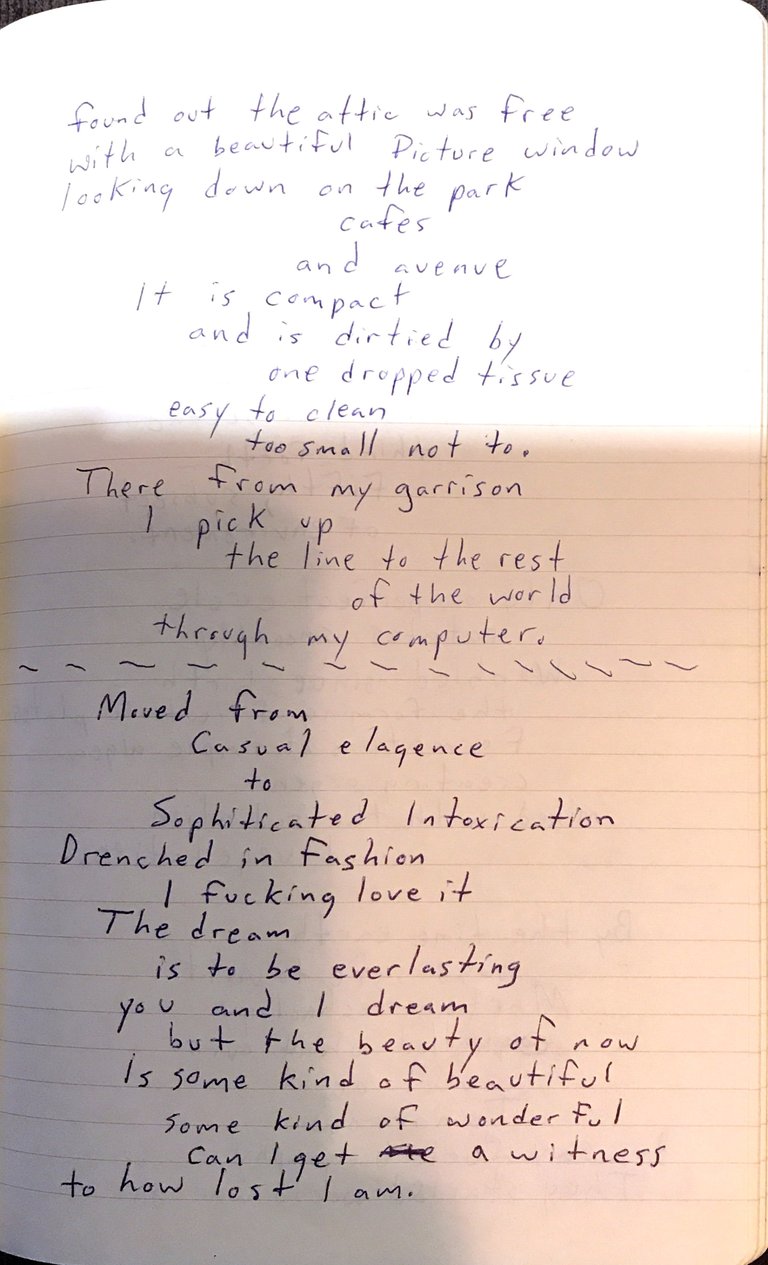 found out the attic was free
with a beautiful Picture window
looking down on the park
cafes
and avenue
It is compact
and is dirtied by
one dropped tissue
easy to clean
too small not to.
There from my garrison
I pick up
the line to the rest
of the world
through my computer.
~ ~ ~ ~ ~ ~ ~ ~ ~ ~ ~ ~ ~ ~ ~
Moved from
Casual elagence
to
Sophiticated Intoxication
Drenched in Fashion
I fucking love it
The dream
is to be everlasting
you and I dream
but the beauty of now
Is some kind of beautiful
some kind of wonderful
Can I get a witness
to how lost I am.